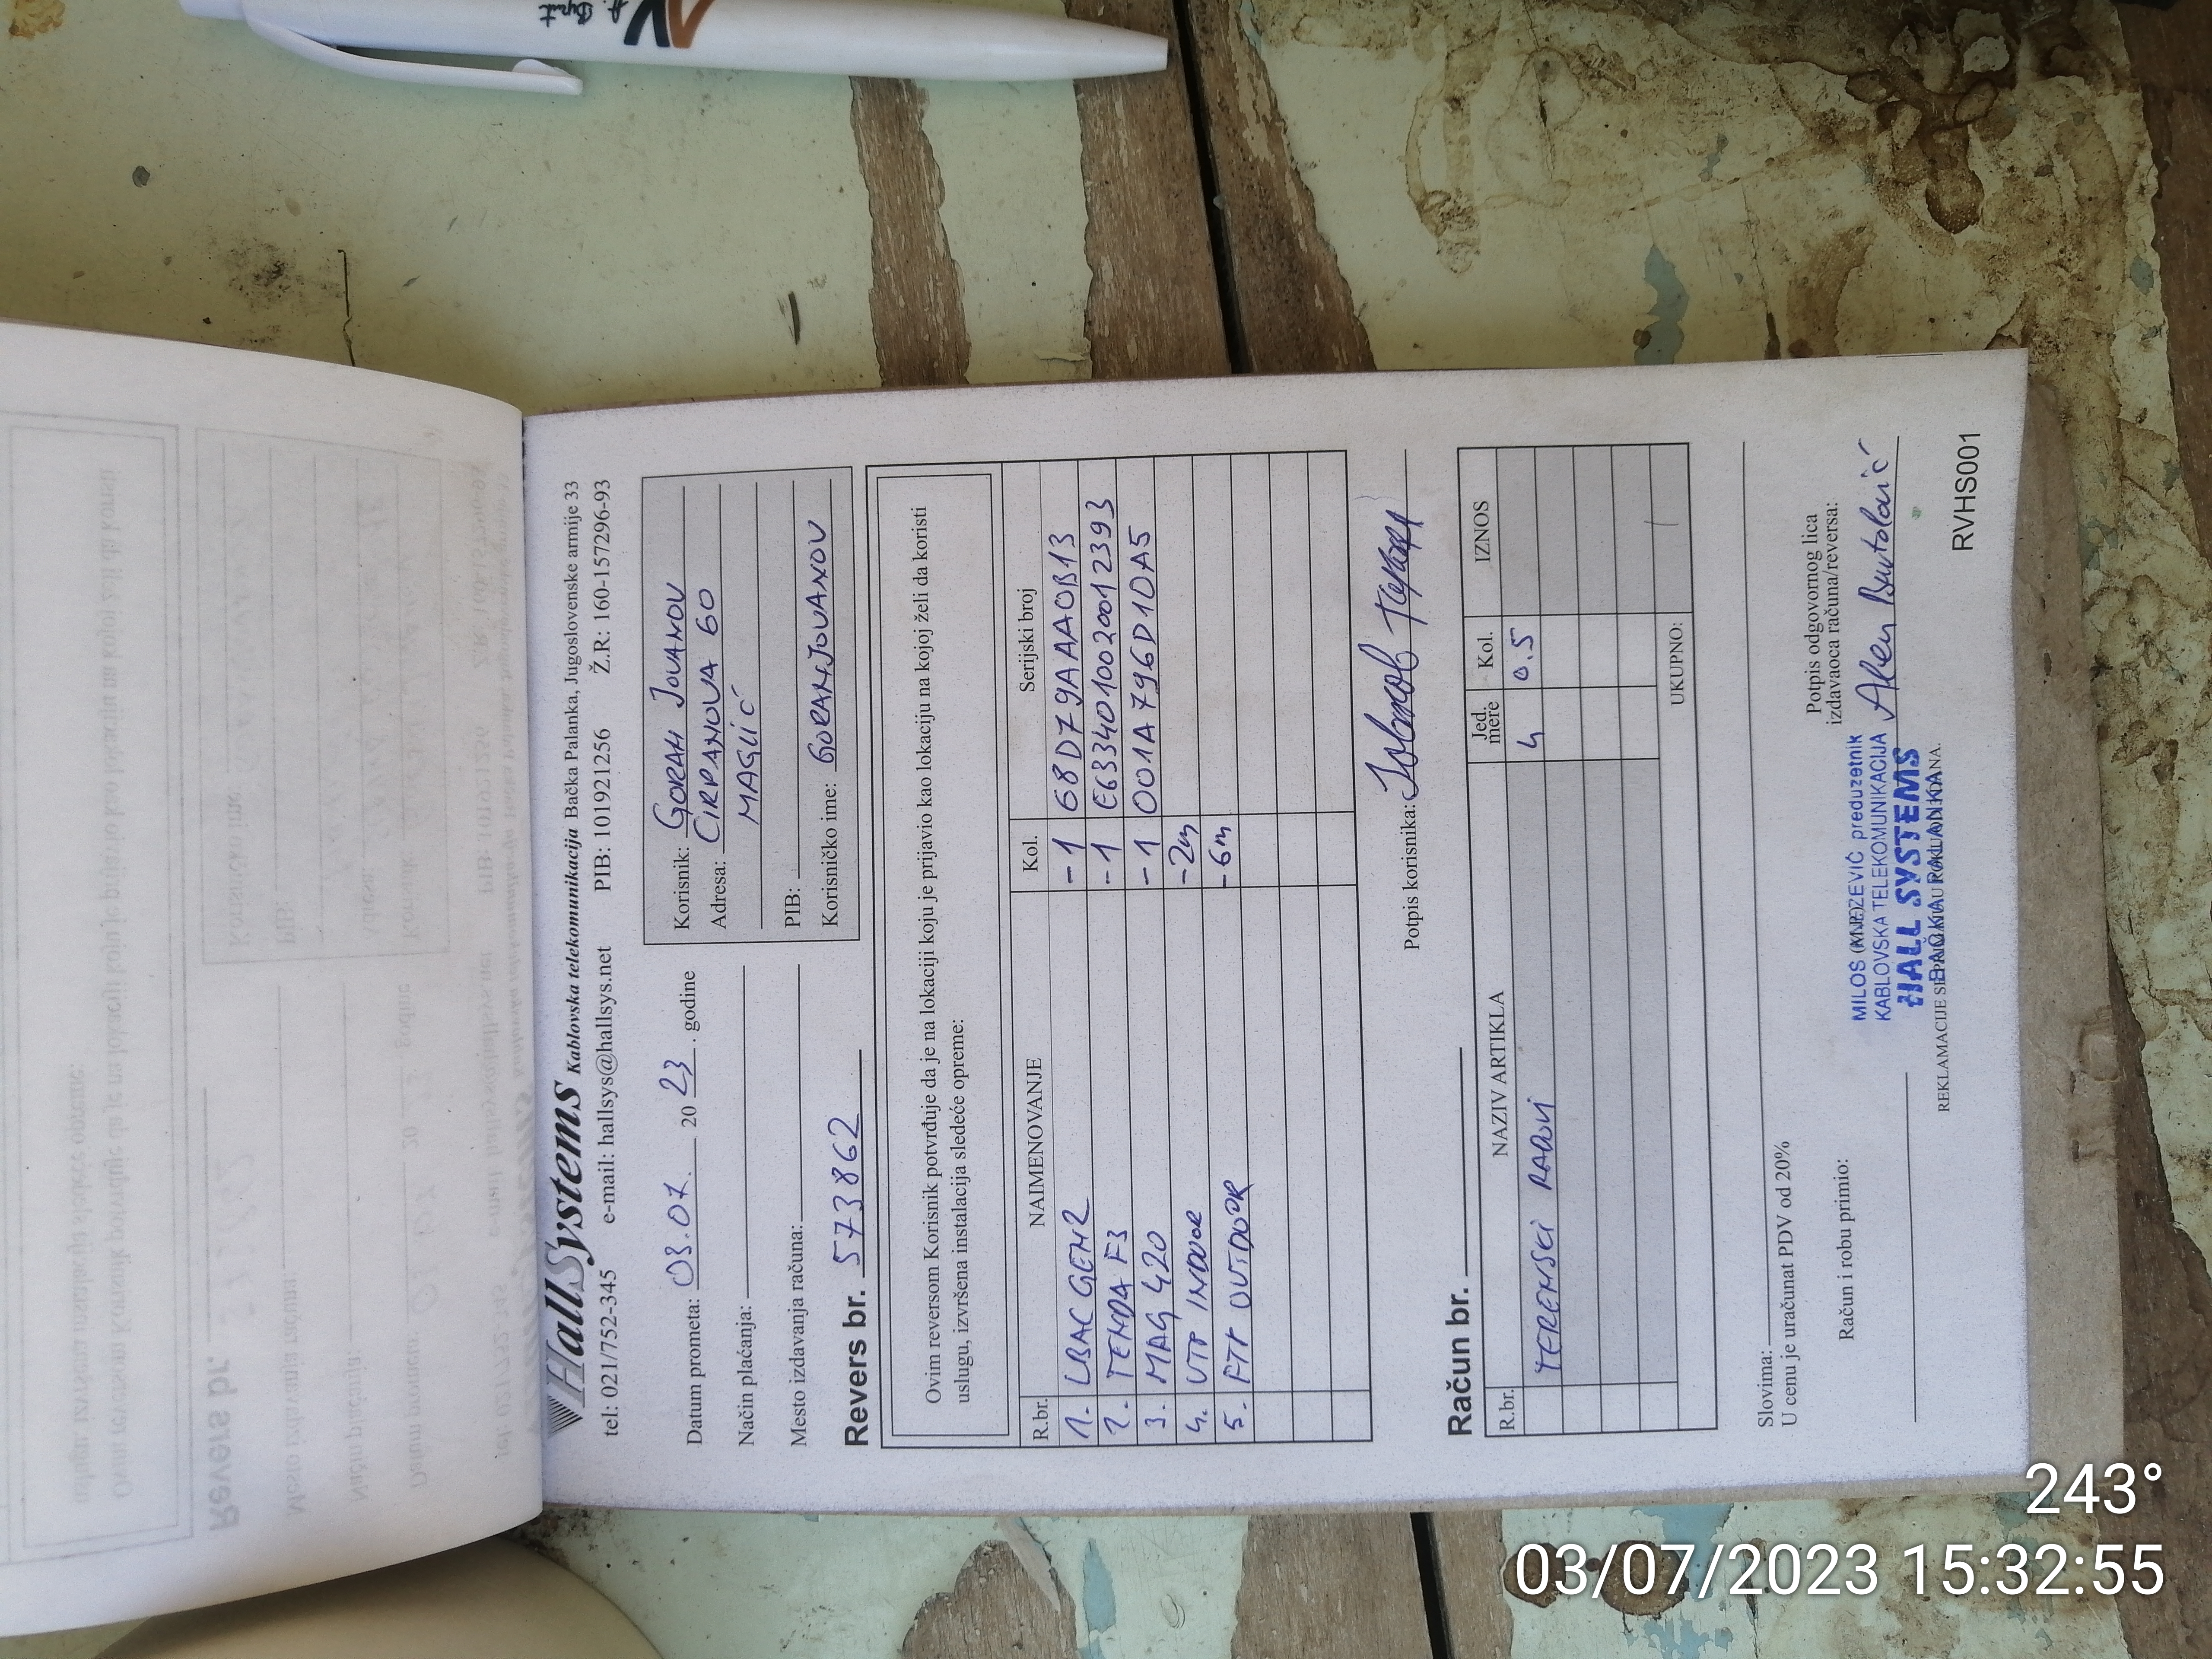 HallSystems Kablovska telekomunikacija Bačka Palanka, Jugoslovenske armije 33
tel: 021/752-345 e-mail: hallsys@hallsys.net PIB: 101921256 Ž.R: 160-157296-93
Datum prometa: 03.07. 2023. godine
Način plaćanja:
Mesto izdavanja računa:
Korisnik: GORAN JOVANOV
Adresa: ĆIRPANOVA 60
MAGLIĆ
PIB:
Korisničko ime: GORANJOVANOV
Revers br. 573862
Ovim reversom Korisnik potvrđuje da je na lokaciji koju je prijavio kao lokaciju na kojoj želi da koristi
uslugu, izvršena instalacija sledeće opreme:
R.br. NAIMENOVANJE Kol. Serijski broj
1. LBAC GEN2 -1 68D79AAA0B13
2. TENDA F3 -1 E6334010020012393
3. MAG 420 -1 001A796D1DA5
4. UTP INDOOR -2m
5. FTP OUTDOOR -6m
Potpis korisnika:
Račun br.
R.br. NAZIV ARTIKLA Jed. mere Kol. IZNOS
TERENSKI RADOVI 4 0.5
UKUPNO:
Slovima:
U cenu je uračunat PDV od 20%
Račun i robu primio:
Potpis odgovornog lica
izdavaoca računa/reversa:
preduzetnik
KABLOVSKA TELEKOMUNIKACIJA
HALL SYSTEMS
BAČKA PALANKA
REKLAMACIJE
RVHS001
243°
03/07/2023 15:32:55